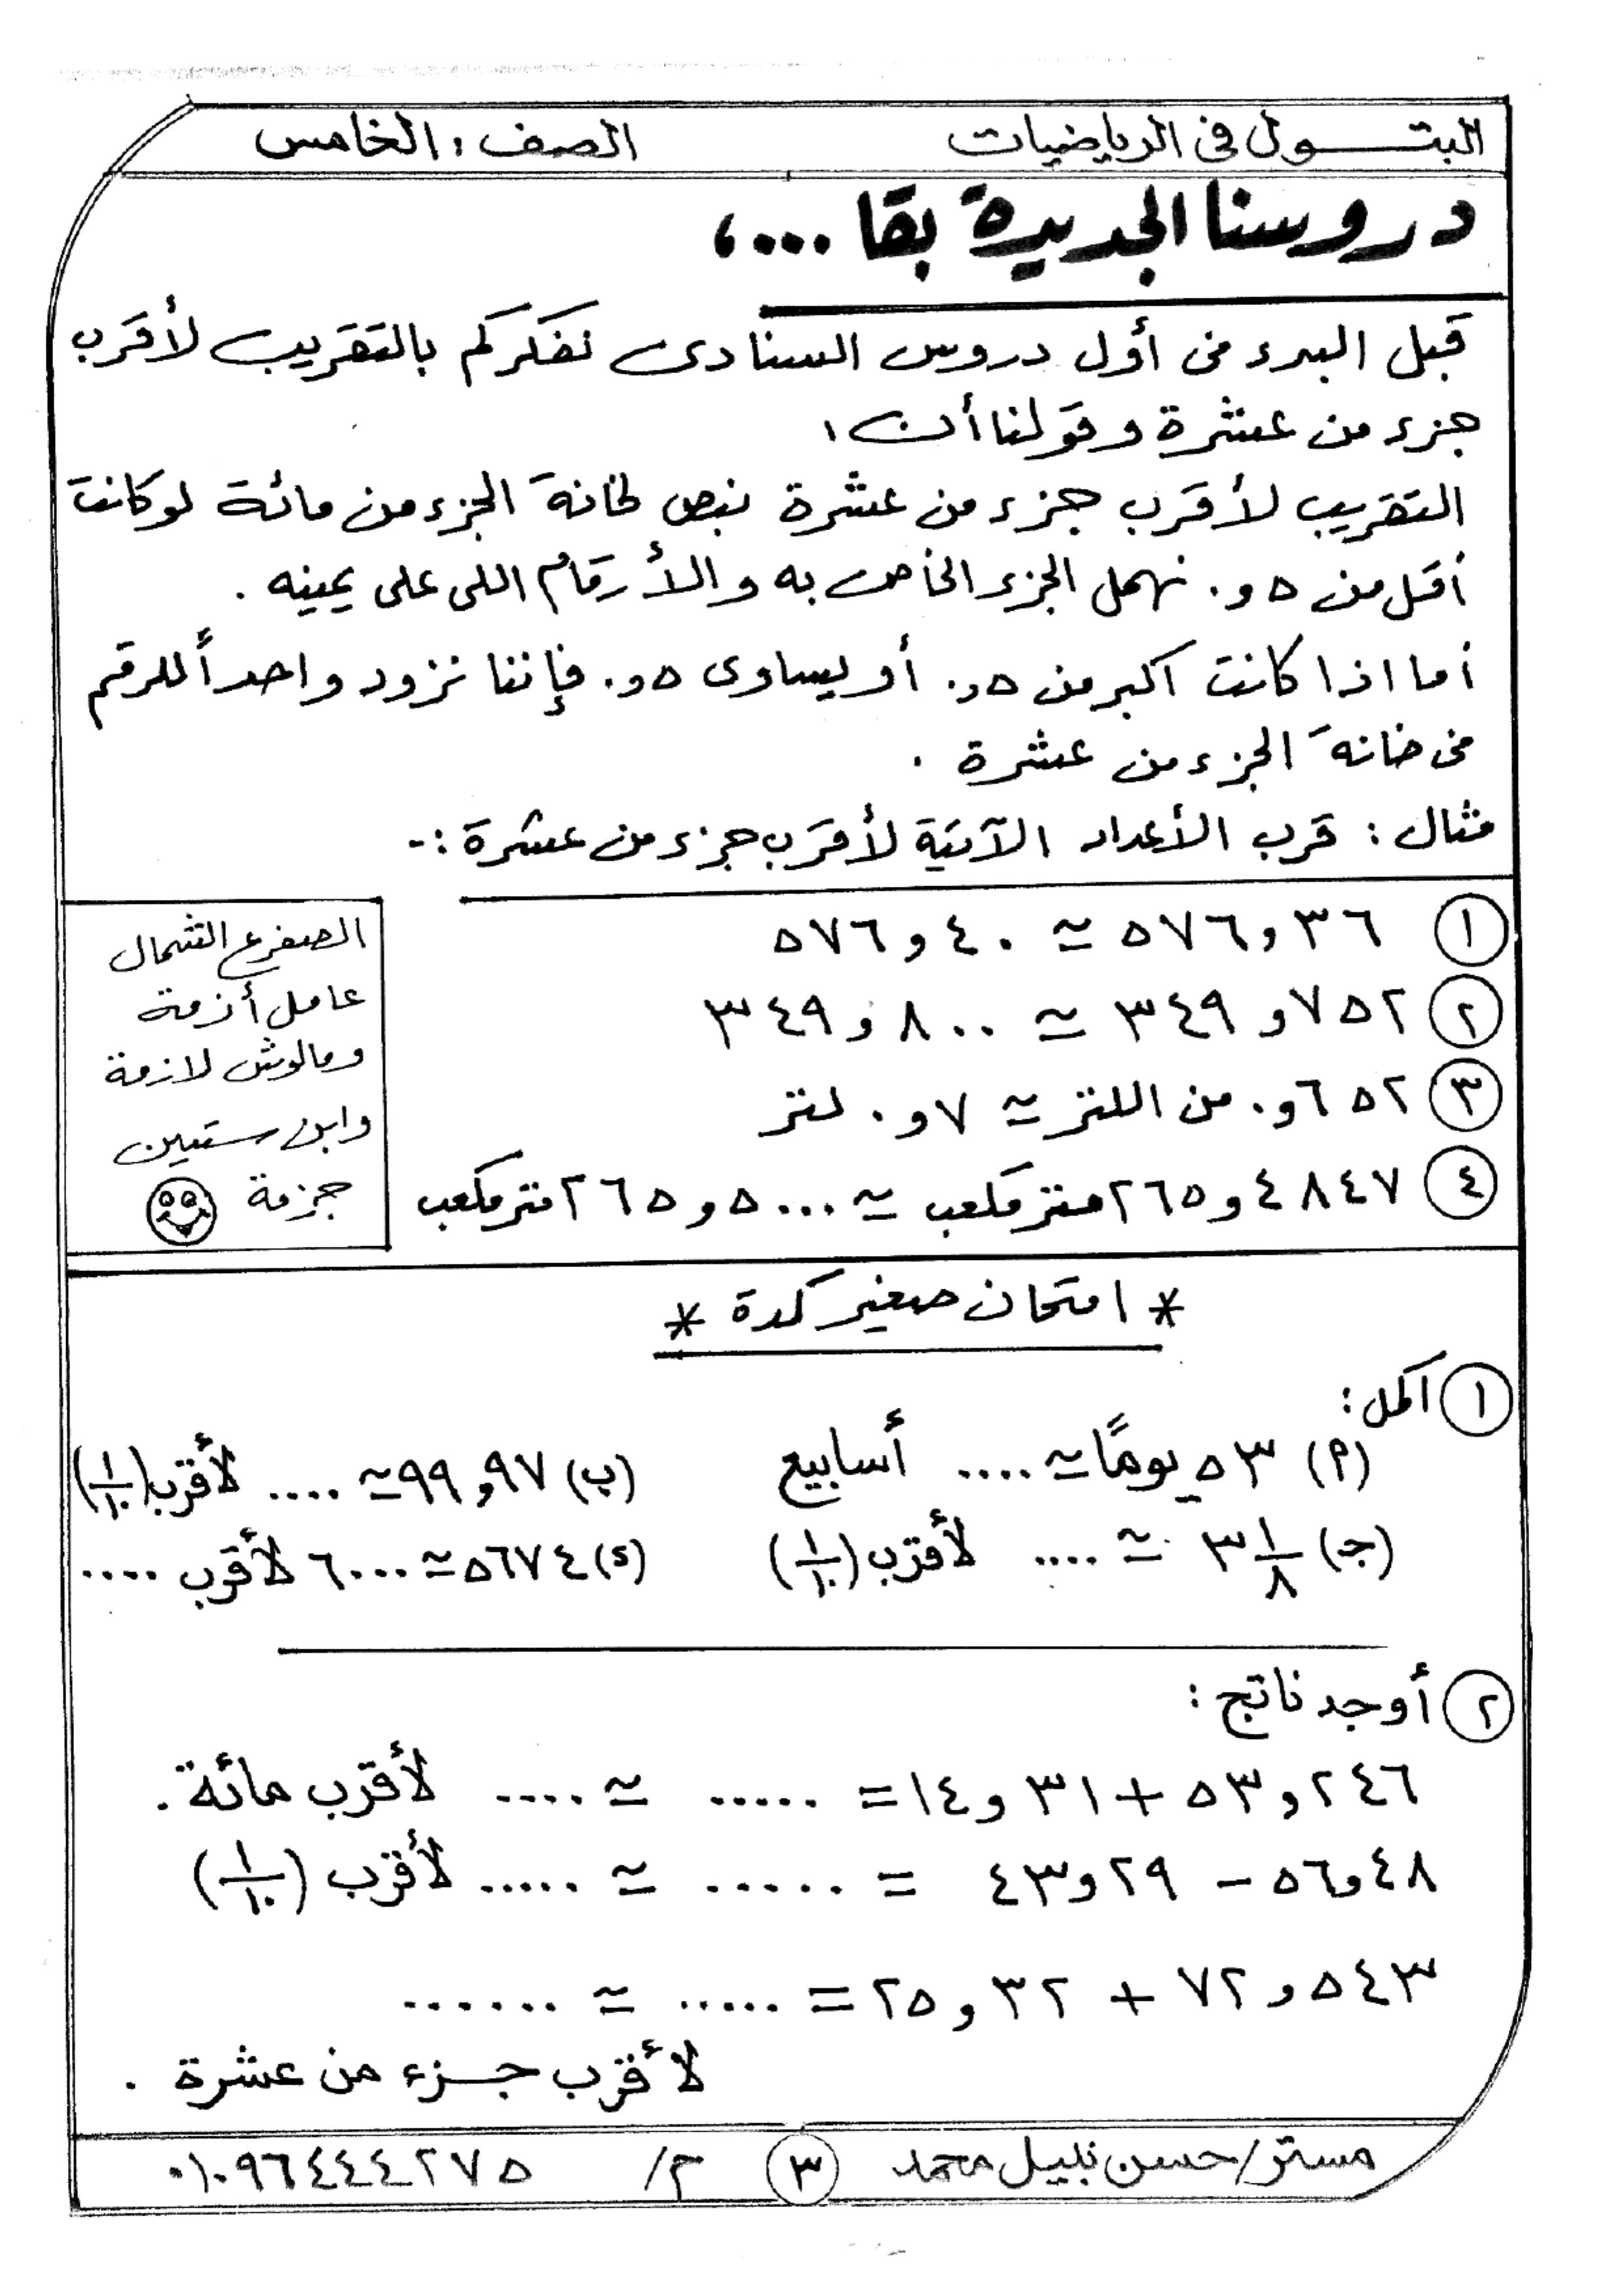 البتول في الرياضيات
الصف : الخامس
دروسنا الجديدة بقا ...،
قبل البدء في أول دروس السنادى نفكركم بالتقريب لأقرب
جزء من عشرة وقولنا أن :
التقريب لأقرب جزء من عشرة نبص لخانة الجزء من مائة لو كانت
أقل من ٥و٠ نهمل الجزء الخاص به والأرقام اللى على يمينه .
أما اذا كانت أكبر من ٥و٠ أو يساوى ٥و٠ فإننا نزود واحداً للرقم
فى خانة الجزء من عشرة .
مثال : قرب الأعداد الآتية لأقرب جزء من عشرة :-
١ ٣٦و٥٧٦ ≃ ٤٠و٥٧٦
٢ ٧٥٢و٣٤٩ ≃ ٨٠٠و٣٤٩
٣ ٦٥٢و٠ من اللتر ≃ ٧و٠ لتر
٤ ٤٨٤٧و٢٦٥ متر مكعب ≃ ٥٠٠٠و٢٦٥ متر مكعب
الصفر ع الشمال
عامل أزمة
ومالوش لازمة
وابن ستين
جزمة
* امتحان صغير كدة *
١ أكمل :
(أ) ٥٣ يوماً ≃ .... أسابيع (ب) ٩٧و٩٩ ≃ .... لأقرب (١/١٠)
(جـ) ٣ ١/٨ ≃ .... لأقرب (١/١٠) (د) ٥٦٧٤ ≃ ٦٠٠٠ لأقرب ....
٢ أوجد ناتج :
٢٤٦و٥٣ + ٣١و١٤ = ..... ≃ .... لأقرب مائة .
٤٨و٥٦ – ٢٩و٤٣ = ..... ≃ ..... لأقرب (١/١٠)
٥٤٣و٧٢ + ٣٢و٢٥ = ..... ≃ ......
لأقرب جزء من عشرة .
مستر/ حسن نبيل محمد ٣ م/ ٠١٠٩٦٤٤٤٢٧٥